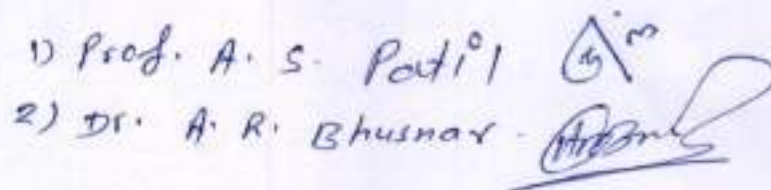 1) Prof. A. S. Patil
2) Dr. A. R. Bhusnar.